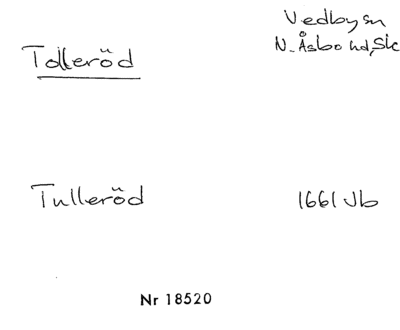 Tolleröd
Vedby sn
N. Åsbo hd, Sk
Tulleröd
1661 Jb
Nr 18520